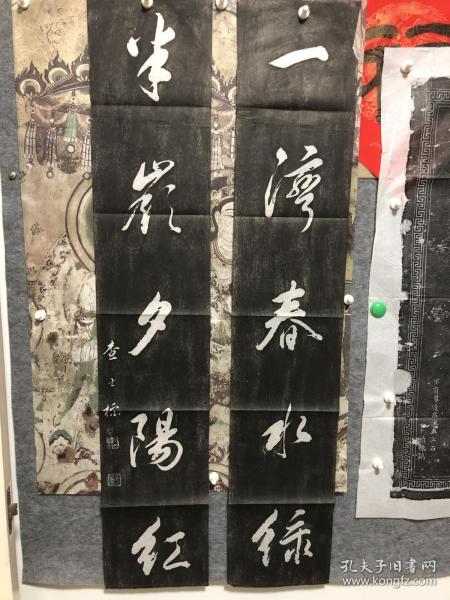 一灣春水綠
半嶺夕陽紅
查士標
孔夫子旧书网
www.kongfz.com